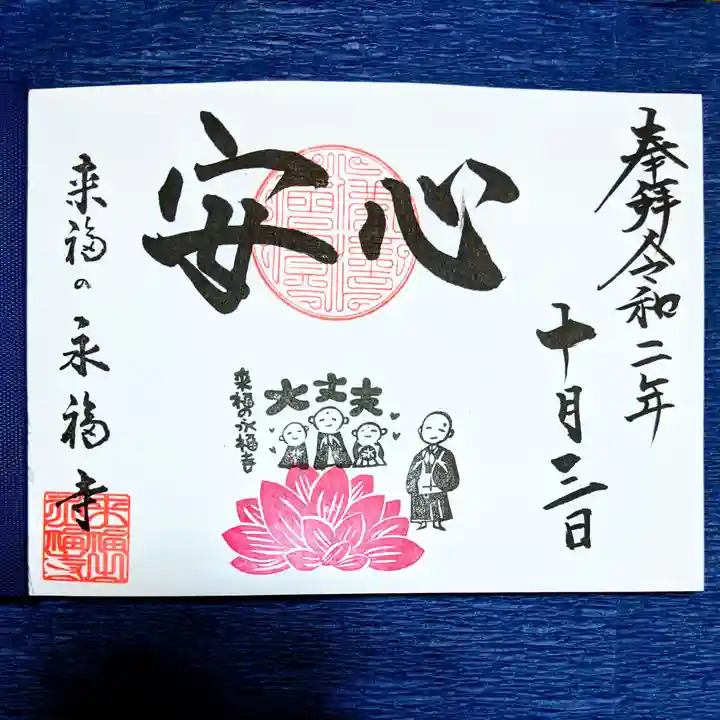 奉拝令和二年
十月三日
安心
大丈夫
来福の永福寺
来福の永福寺